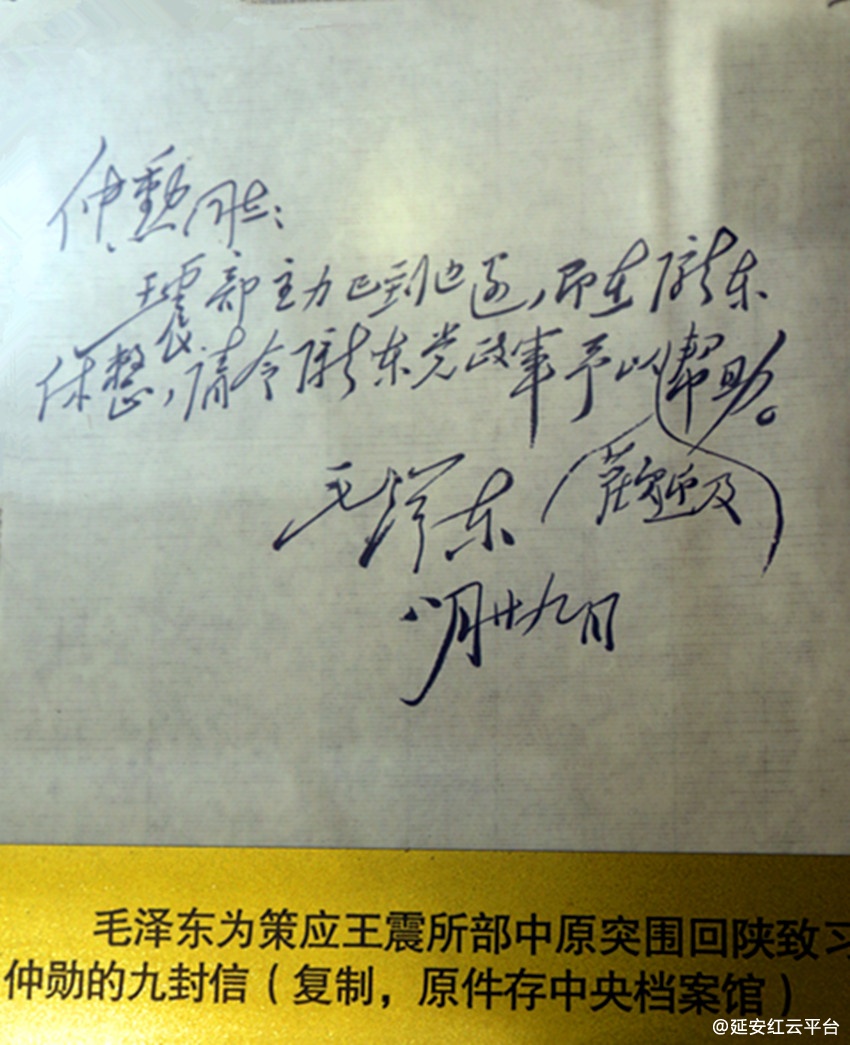 仲勳同志：
王震部主力已到边区，即在陇东
休整，请令陇东党政军予以帮助。
（欢迎及
毛泽东
八月廿九日
毛泽东为策应王震所部中原突围回陕致习
仲勋的九封信（复制，原件存中央档案馆）
@延安红云平台